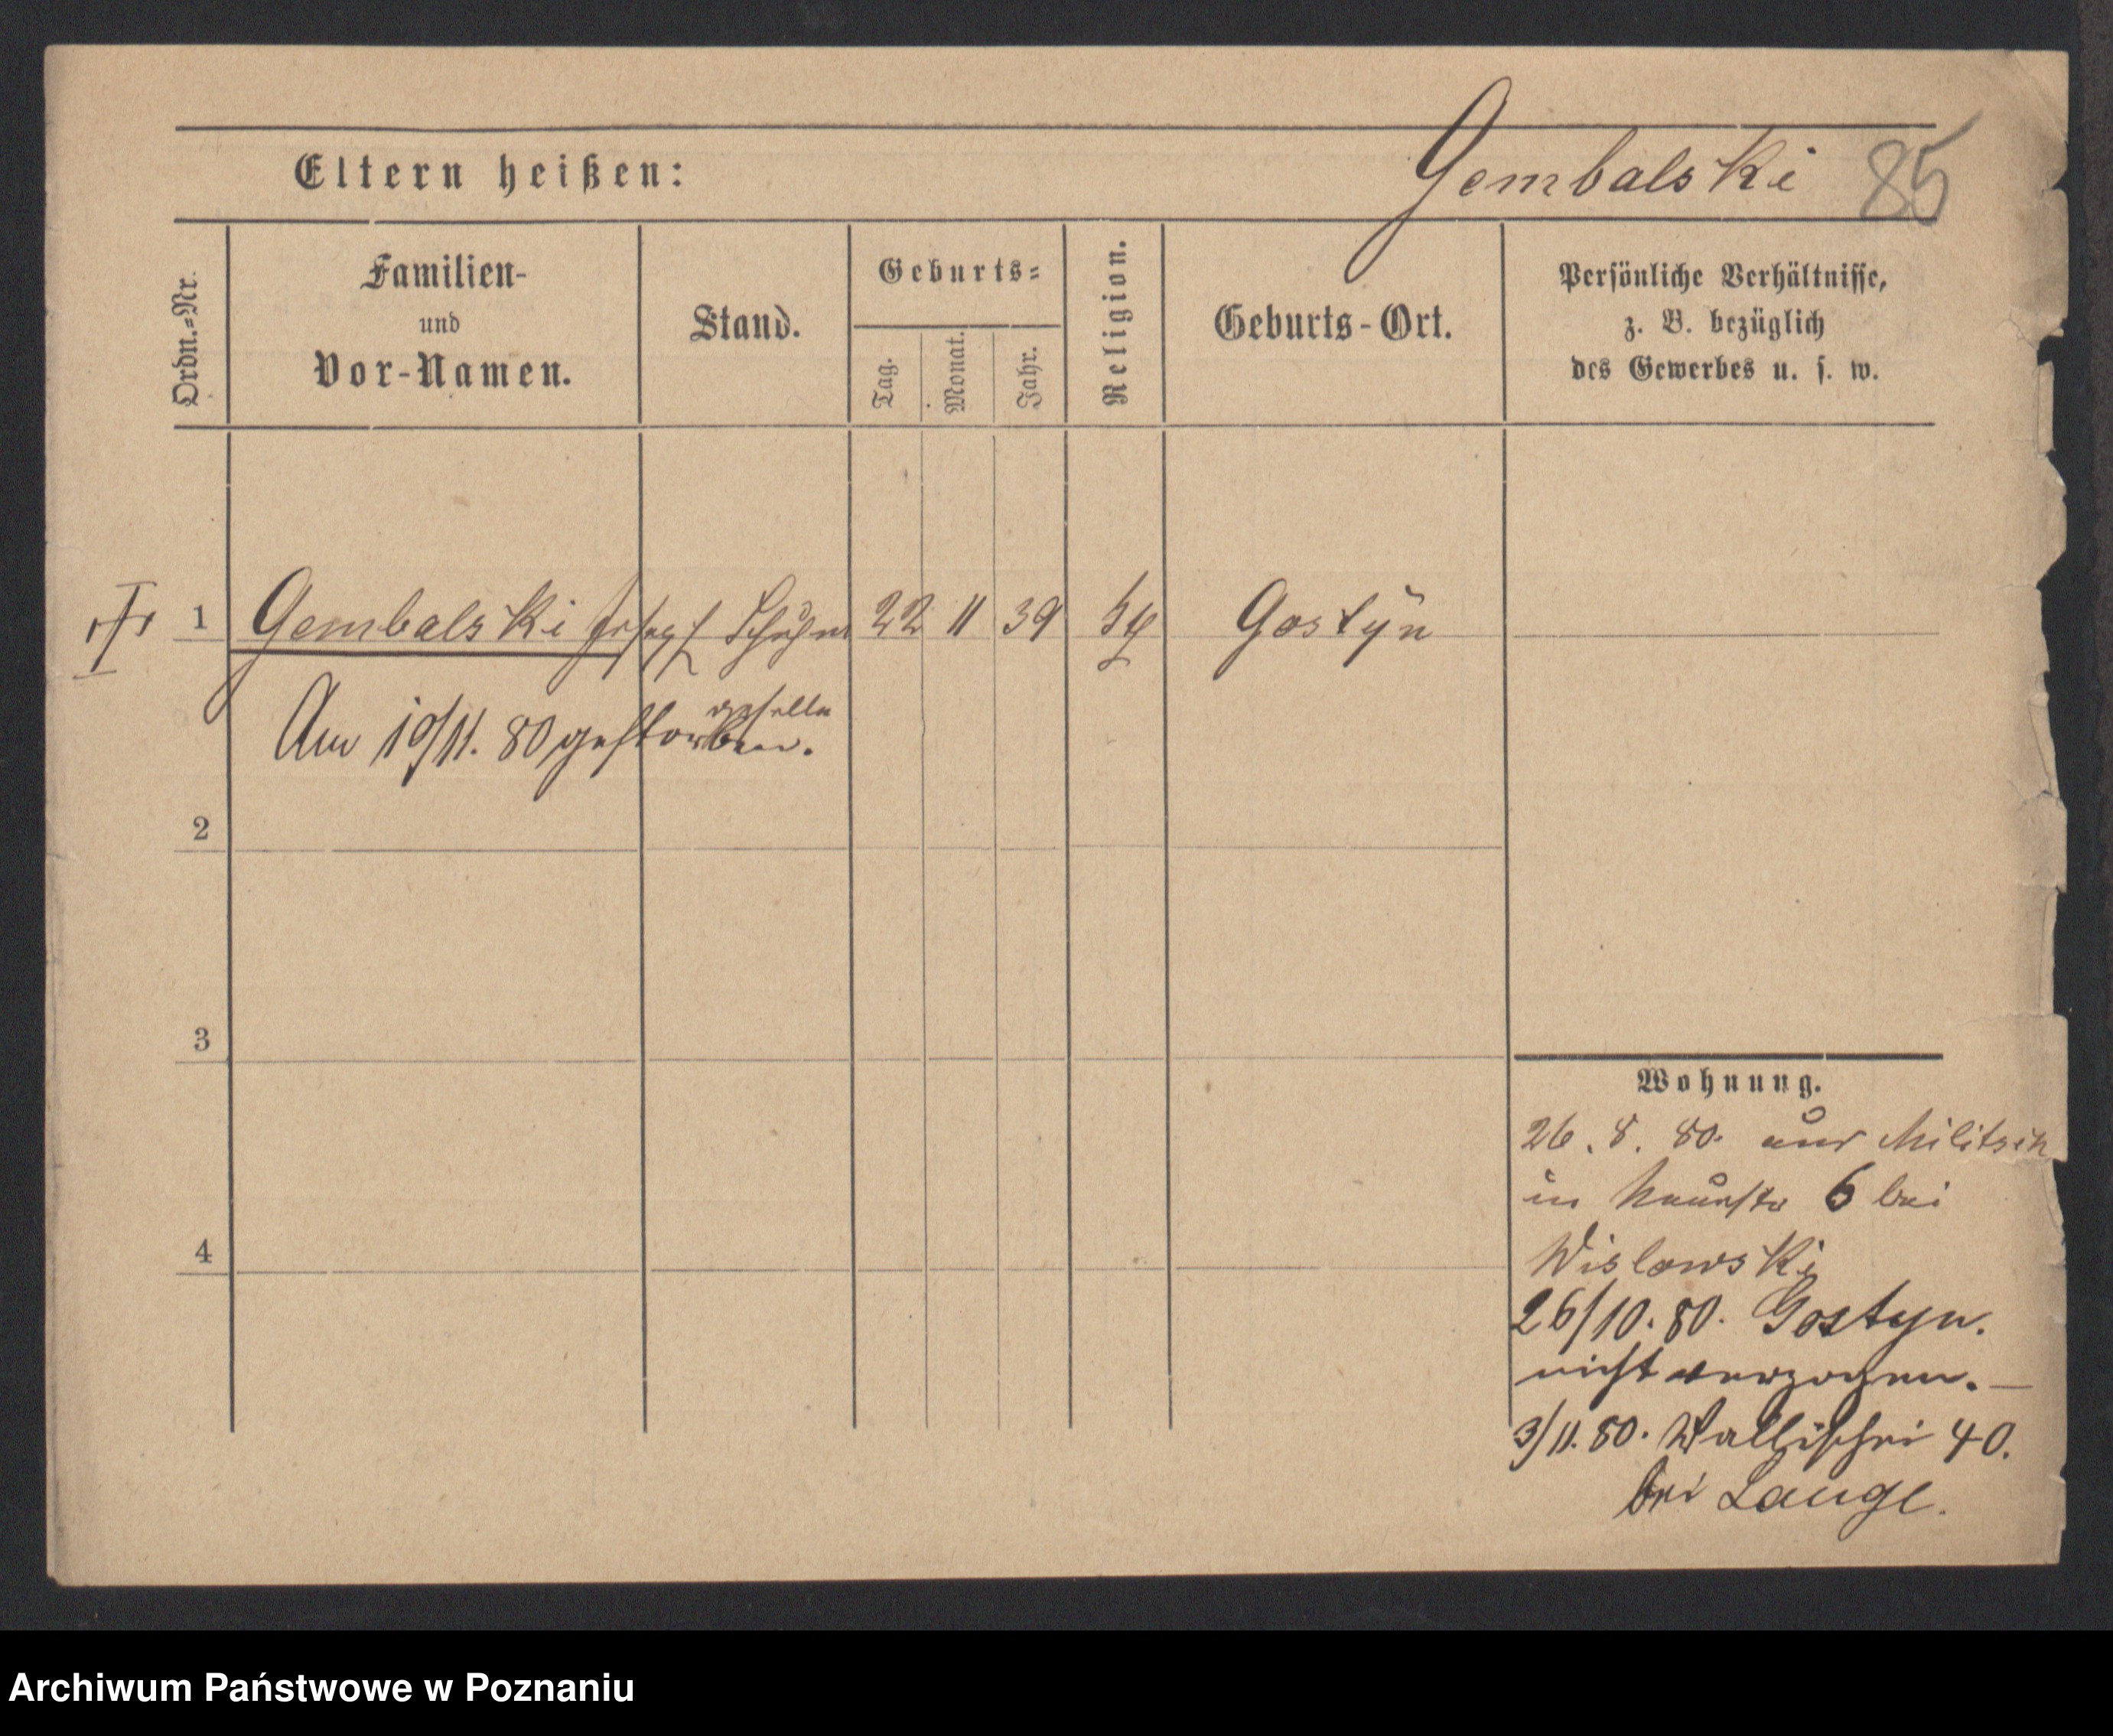 Gembalski 85
Eltern heißen:
Ordn.=Nr.
Familien-
und
Vor-Namen.
Stand.
Geburts=
Tag.
Monat.
Jahr.
Religion.
Geburts-Ort.
Persönliche Verhältnisse,
z. B. bezüglich
des Gewerbes u. s. w.
1 Gembalski Joseph Schuhm 22 11 39 kth Gostyn
geselle
Am 19/11. 80 gestorben.
2
3
4
Wohnung.
26. 8. 80. aus Militsch
in 6 bei
Wislowski
26/10. 80. Gostyn.
nicht verzogen.—
3/11. 80. Wallischei 40.
bei Lange.
Archiwum Państwowe w Poznaniu